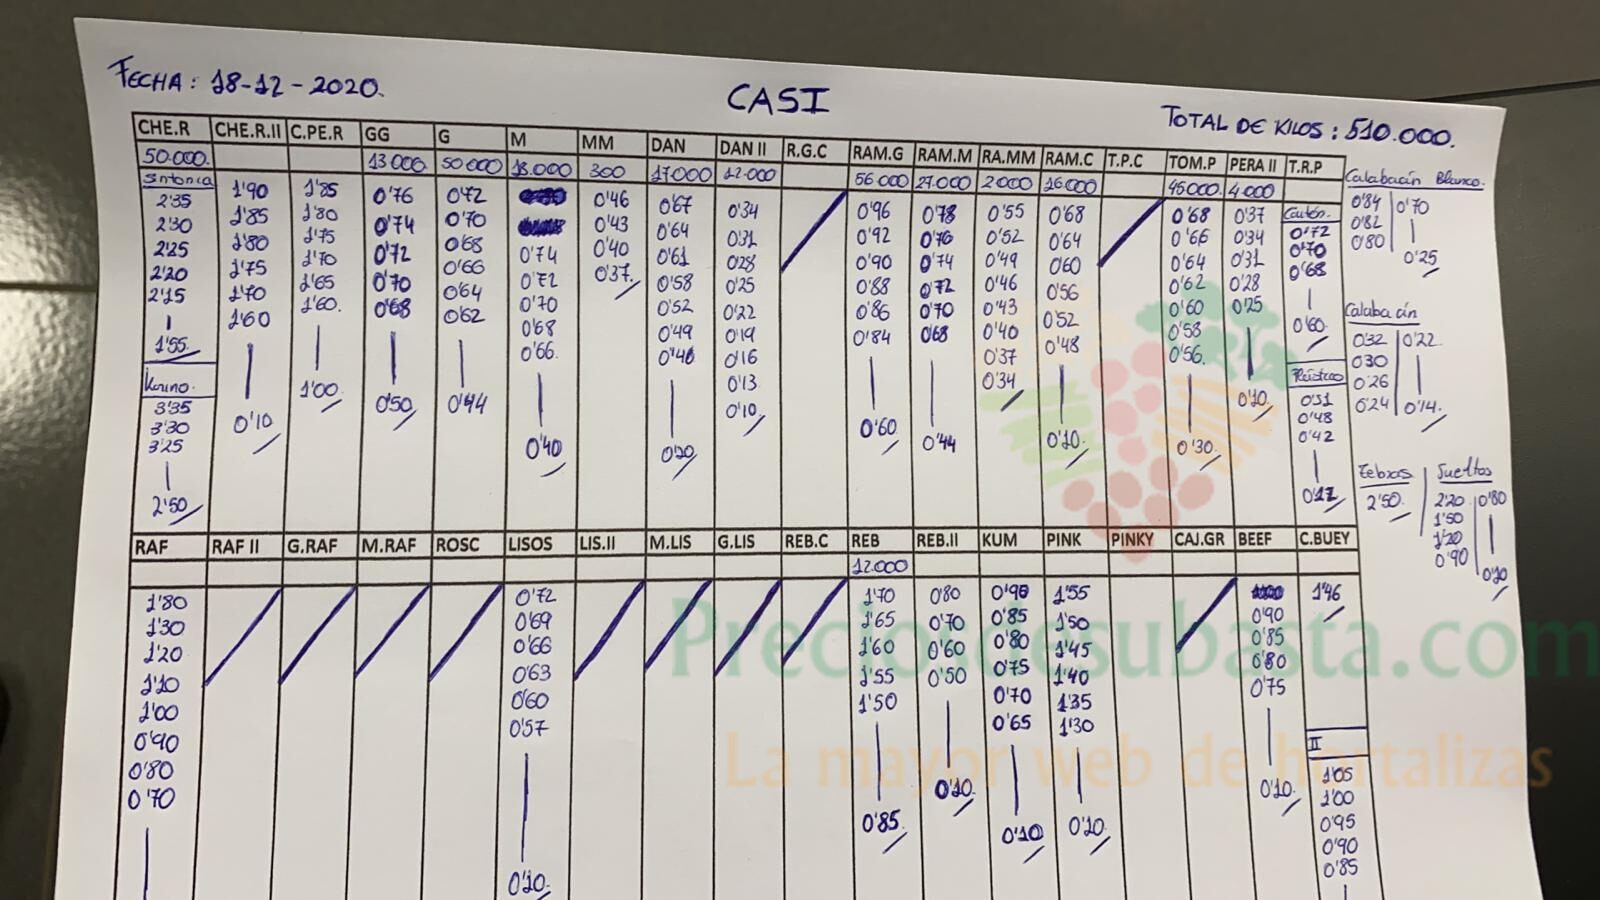 FECHA: 18-12-2020.
CASI
TOTAL DE KILOS: 510.000.
CHE.R CHE.R.II C.PE.R GG G M MM DAN DAN II R.G.C RAM.G RAM.M RA.MM RAM.C T.P.C TOM.P PERA II T.R.P
50.000. 13.000 50.000 18.000 300 17.000 12.000 56.000 27.000 2.000 16.000 45.000 4.000
Sintonia
2'35
2'30
2'25
2'20
2'15
1'55
Kumo.
3'35
3'30
3'25
2'50
1'90
1'85
1'80
1'75
1'70
1'60
0'10
1'85
1'80
1'75
1'70
1'65
1'60.
1'00
0'76
0'74
0'72
0'70
0'68
0'50
0'72
0'70
0'68
0'66
0'64
0'62
0'44
0'74
0'72
0'70
0'68
0'66
0'40
0'46
0'43
0'40
0'37
0'67
0'64
0'61
0'58
0'52
0'49
0'46
0'20
0'34
0'31
0'28
0'25
0'22
0'19
0'16
0'13
0'10
0'96
0'92
0'90
0'88
0'86
0'84
0'60
0'78
0'76
0'74
0'72
0'70
0'68
0'44
0'55
0'52
0'49
0'46
0'43
0'40
0'37
0'34
0'68
0'64
0'60
0'56
0'52
0'48
0'10
0'68
0'66
0'64
0'62
0'60
0'58
0'56
0'30
0'37
0'34
0'31
0'28
0'25
0'10
Cartón.
0'72
0'70
0'68
0'60
Plástico
0'51
0'48
0'42
0'12
Calabacín Blanco.
0'84 0'70
0'82
0'80 0'25
Calabacín
0'32 0'22
0'30
0'26
0'24 0'14
Zebras
2'50.
Sueltos
2'20 0'80
1'50
1'20
0'90 0'10
RAF RAF II G.RAF M.RAF ROSC LISOS LIS.II M.LIS G.LIS REB.C REB REB.II KUM PINK PINKY CAJ.GR BEEF C.BUEY
12.000
1'80
1'30
1'20
1'10
1'00
0'90
0'80
0'70
0'72
0'69
0'66
0'63
0'60
0'57
0'10
1'70
1'65
1'60
1'55
1'50
0'85
0'80
0'70
0'60
0'50
0'10
0'90
0'85
0'80
0'75
0'70
0'65
0'10
1'55
1'50
1'45
1'40
1'35
1'30
0'10
0'90
0'85
0'80
0'75
0'10
1'46
II
1'05
1'00
0'95
0'90
0'85
Preciosdesubasta.com
La mayor web de hortalizas